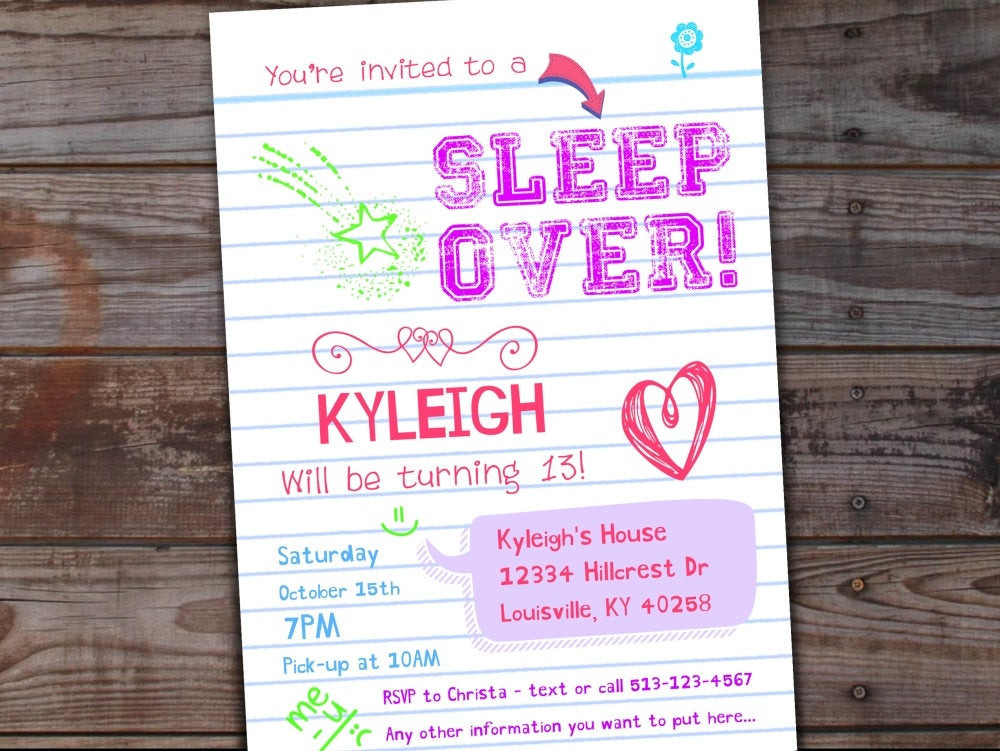 You're invited to a
SLEEP
OVER!
KYLEIGH
Will be turning 13!
Saturday
October 15th
7PM
Pick-up at 10AM
Kyleigh's House
12334 Hillcrest Dr
Louisville, KY 40258
RSVP to Christa - text or call 513-123-4567
Any other information you want to put here...